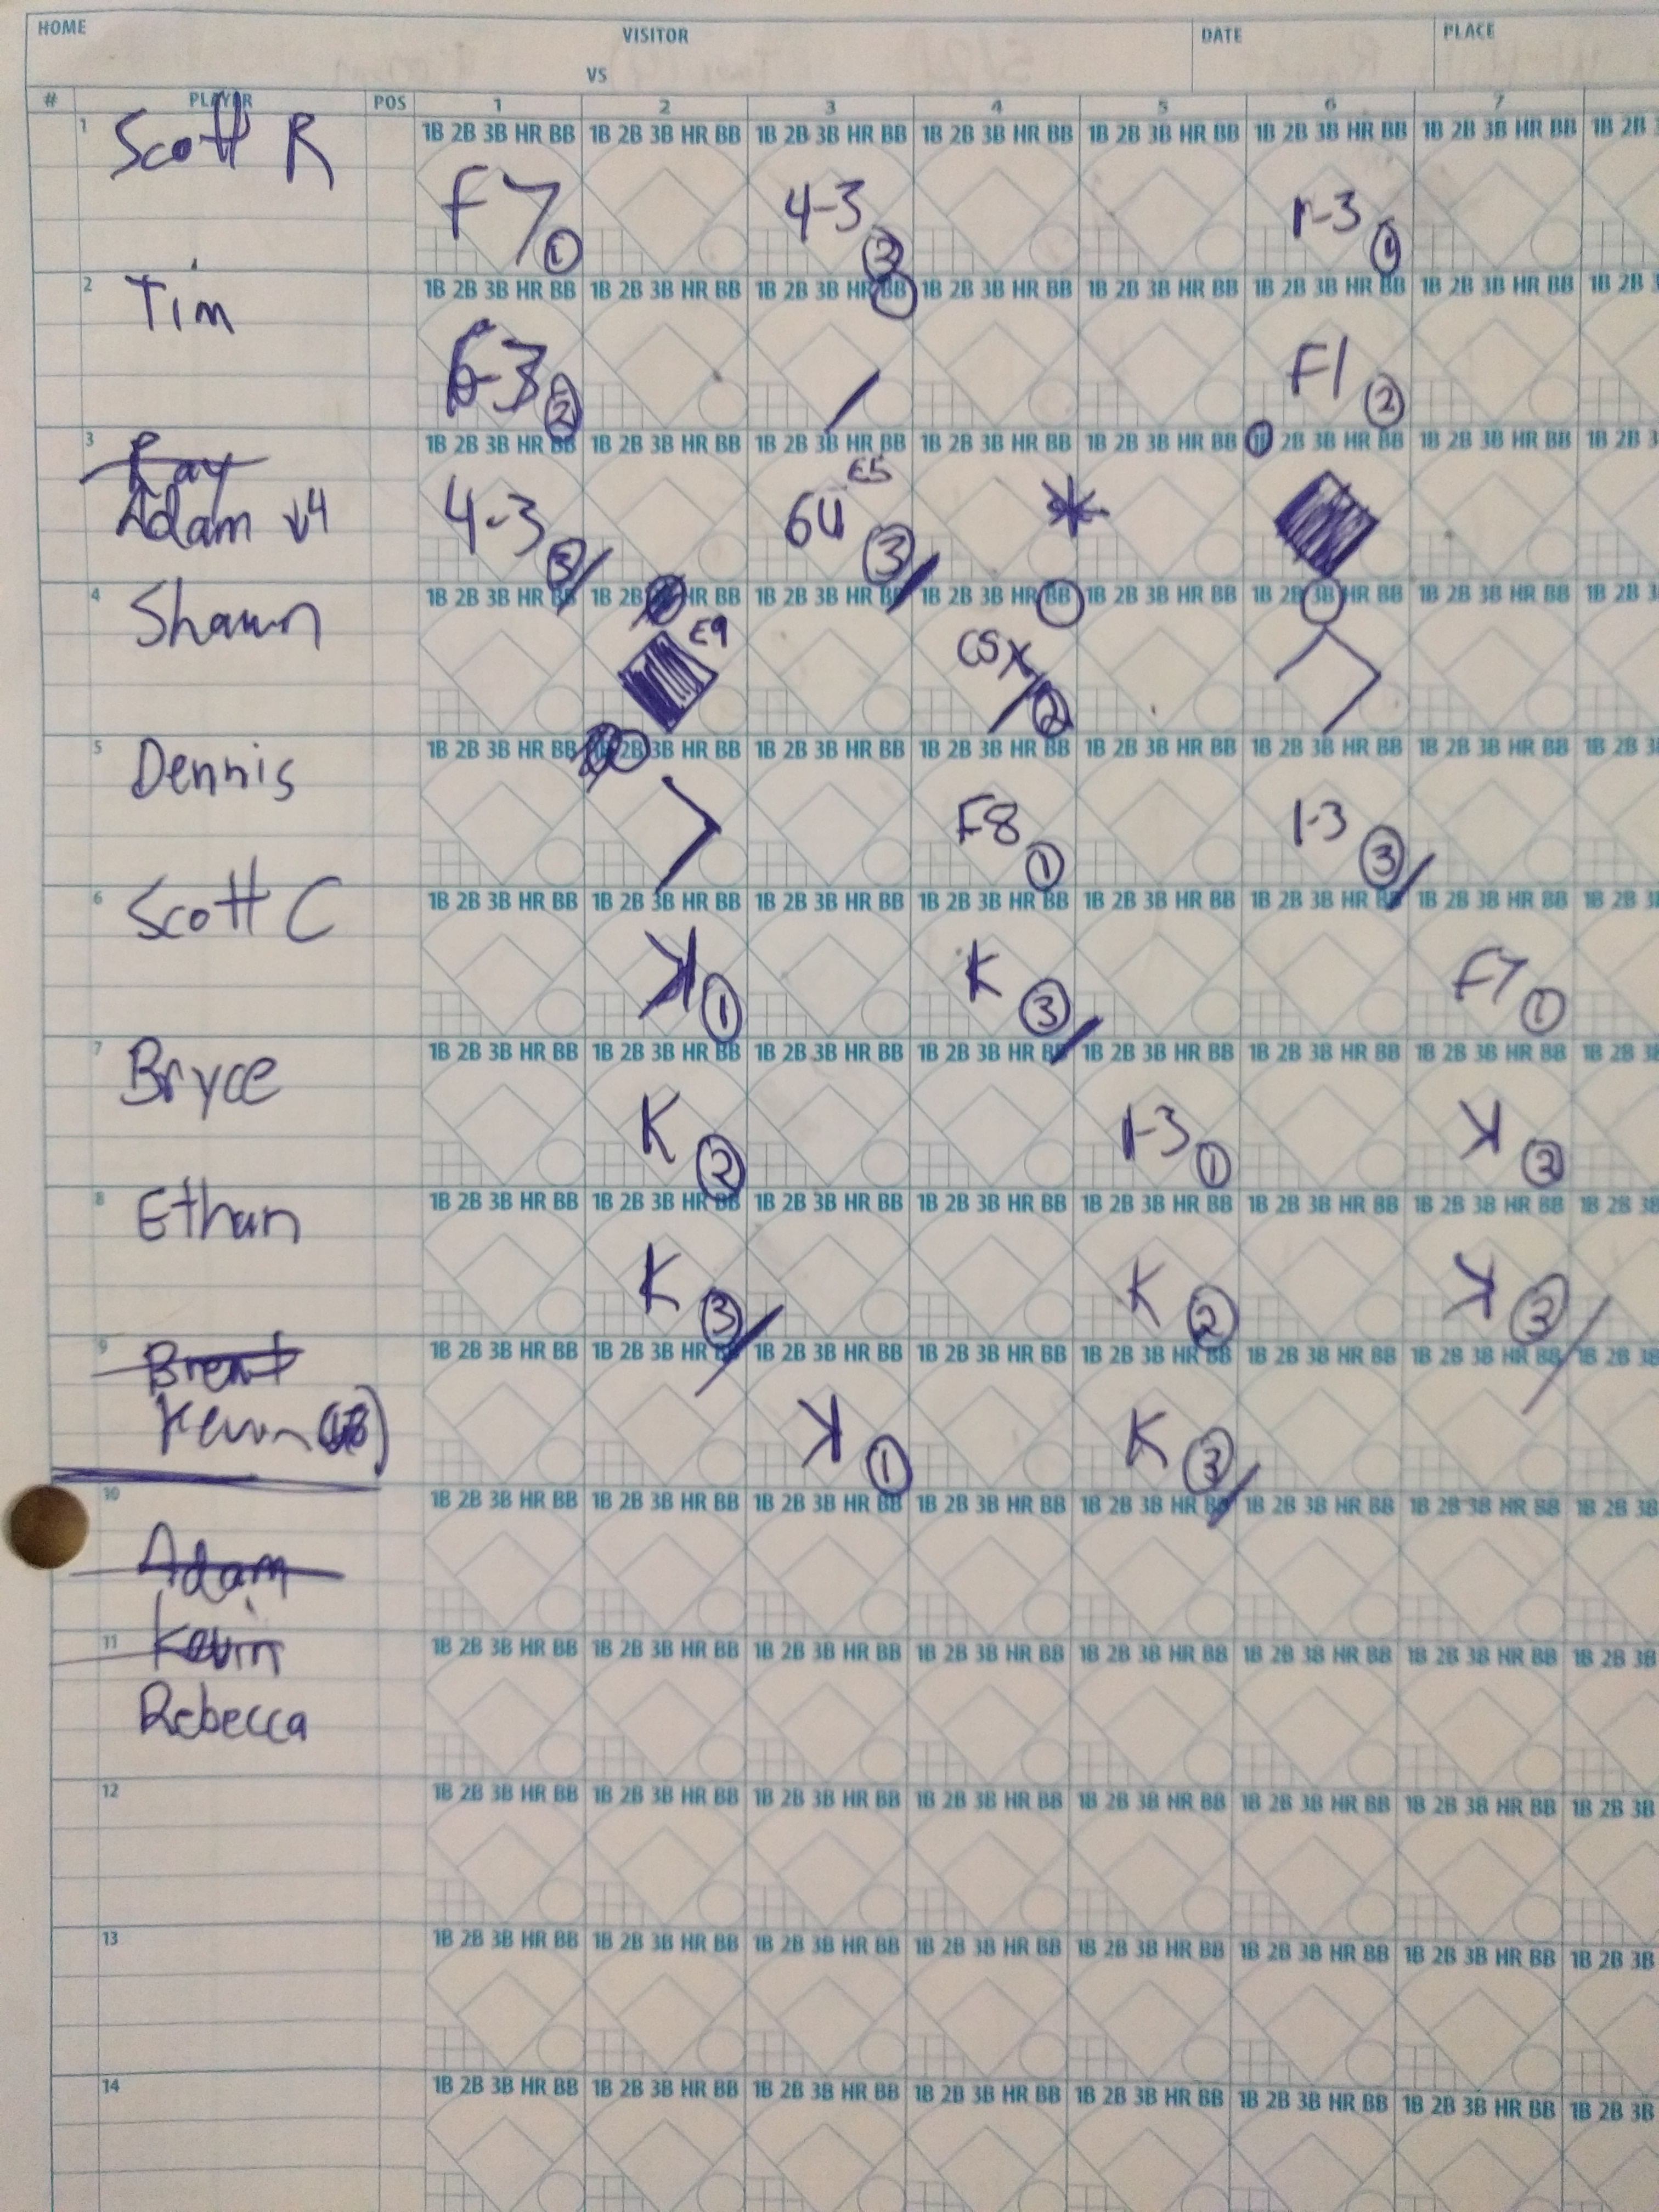 HOME VISITOR DATE PLACE
VS
# PLAYER POS 1 2 3 4 5 6 7
1B 2B 3B HR BB 1B 2B 3B HR BB 1B 2B 3B HR BB 1B 2B 3B HR BB 1B 2B 3B HR BB 1B 2B 3B HR BB 1B 2B 3B HR BB 1B 2B
1 Scott R F7 1 4-3 2 1-3 1
1B 2B 3B HR BB 1B 2B 3B HR BB 1B 2B 3B HR BB 1B 2B 3B HR BB 1B 2B 3B HR BB 1B 2B 3B HR BB 1B 2B 3B HR BB 1B 2B 3
2 Tim 6-3 2 F1 2
1B 2B 3B HR BB 1B 2B 3B HR BB 1B 2B 3B HR BB 1B 2B 3B HR BB 1B 2B 3B HR BB 2B 3B HR BB 1B 2B 3B HR BB 1B 2B 3
3 Ray E5
Adam ↓4 4-3 3 6U 3 *
1B 2B 3B HR BB 1B 2B HR BB 1B 2B 3B HR BB 1B 2B 3B HR BB 1B 2B 3B HR BB 1B 2B 3B HR BB 1B 2B 3B HR BB 1B 2B 3
4 Shawn E9 CS 2
1B 2B 3B HR BB 2B 3B HR BB 1B 2B 3B HR BB 1B 2B 3B HR BB 1B 2B 3B HR BB 1B 2B 3B HR BB 1B 2B 3B HR BB 1B 2B 3
5 Dennis F8 1 1-3 3
1B 2B 3B HR BB 1B 2B 3B HR BB 1B 2B 3B HR BB 1B 2B 3B HR BB 1B 2B 3B HR BB 1B 2B 3B HR BB 1B 2B 3B HR BB 1B 2B 3
6 Scott C K 1 K 3 F7 1
1B 2B 3B HR BB 1B 2B 3B HR BB 1B 2B 3B HR BB 1B 2B 3B HR BB 1B 2B 3B HR BB 1B 2B 3B HR BB 1B 2B 3B HR BB 1B 2B 3B
7 Bryce K 2 1-3 1 K 2
1B 2B 3B HR BB 1B 2B 3B HR BB 1B 2B 3B HR BB 1B 2B 3B HR BB 1B 2B 3B HR BB 1B 2B 3B HR BB 1B 2B 3B HR BB 1B 2B 3B
8 Ethan K 3 K 2 K 3
1B 2B 3B HR BB 1B 2B 3B HR BB 1B 2B 3B HR BB 1B 2B 3B HR BB 1B 2B 3B HR BB 1B 2B 3B HR BB 1B 2B 3B HR BB 1B 2B 3B
9 Brent
Kevin K 1 K 3
1B 2B 3B HR BB 1B 2B 3B HR BB 1B 2B 3B HR BB 1B 2B 3B HR BB 1B 2B 3B HR BB 1B 2B 3B HR BB 1B 2B 3B HR BB 1B 2B 3B
10 Adam
1B 2B 3B HR BB 1B 2B 3B HR BB 1B 2B 3B HR BB 1B 2B 3B HR BB 1B 2B 3B HR BB 1B 2B 3B HR BB 1B 2B 3B HR BB 1B 2B 3B
11 Kevin
Rebecca
12 1B 2B 3B HR BB 1B 2B 3B HR BB 1B 2B 3B HR BB 1B 2B 3B HR BB 1B 2B 3B HR BB 1B 2B 3B HR BB 1B 2B 3B HR BB 1B 2B 3B
13 1B 2B 3B HR BB 1B 2B 3B HR BB 1B 2B 3B HR BB 1B 2B 3B HR BB 1B 2B 3B HR BB 1B 2B 3B HR BB 1B 2B 3B HR BB 1B 2B 3B
14 1B 2B 3B HR BB 1B 2B 3B HR BB 1B 2B 3B HR BB 1B 2B 3B HR BB 1B 2B 3B HR BB 1B 2B 3B HR BB 1B 2B 3B HR BB 1B 2B 3B